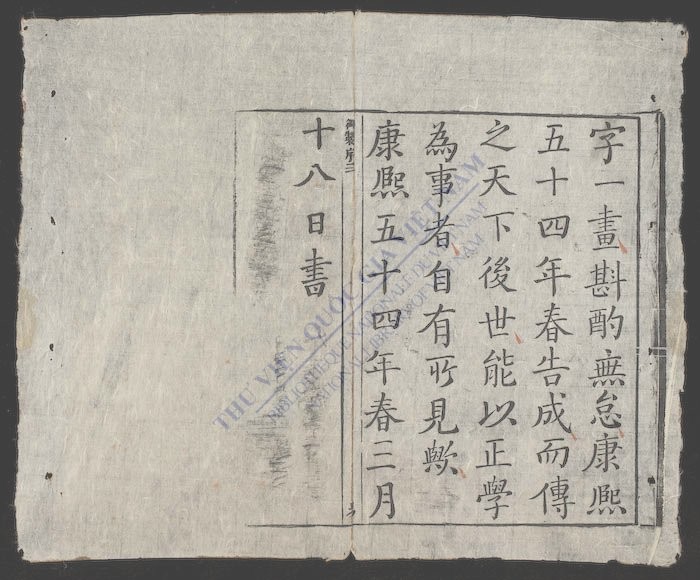 字一畫斟酌無怠康熙
五十四年春告成而傳
之天下後世能以正學
為事者自有所見歟
康熙五十四年春三月
十八日書
御製序三
THƯ VIỆN QUỐC GIA VIỆT NAM
BIBLIOTHEQUE NATIONALE DU VIETNAM
NATIONAL LIBRARY OF VIETNAM